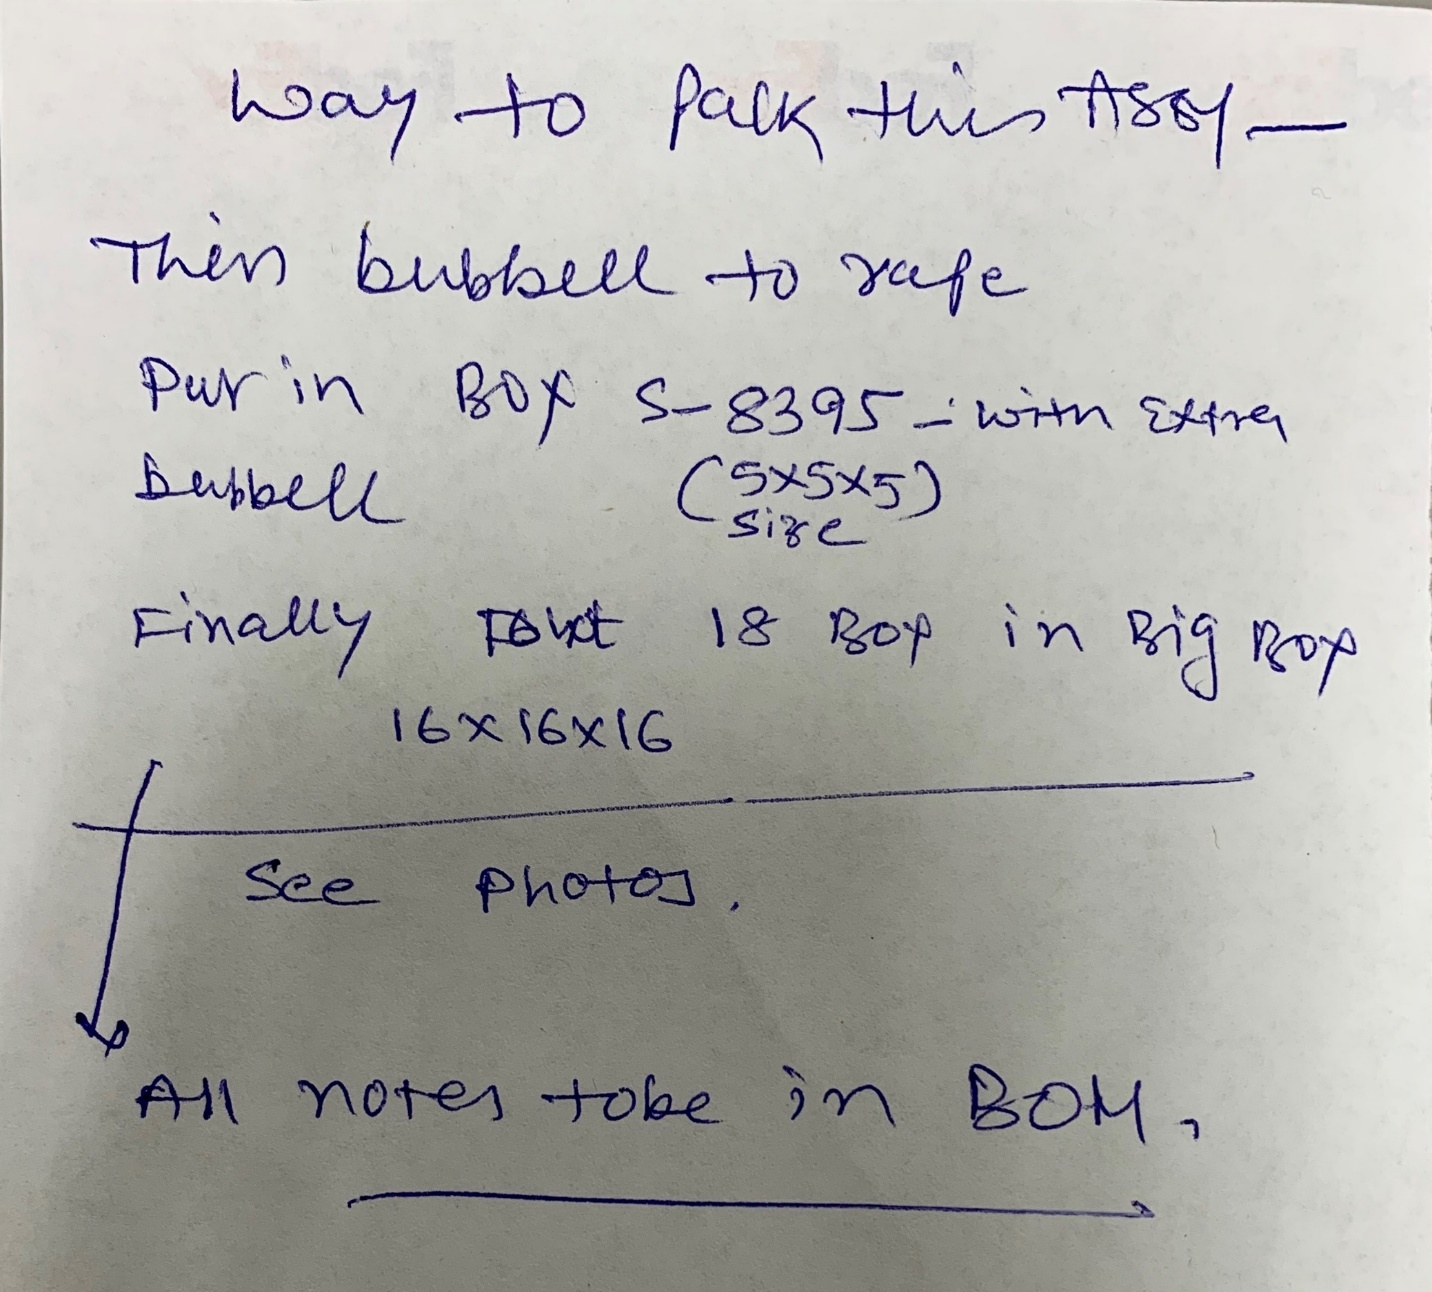 Way to Pack this Assy —
Thin bubbell to rape
Put in Box S-8395 - with Extra
bubbell (5x5x5)
size
Finally 18 Box in Big Box
16x16x16
See photos.
All notes tobe in BOM,